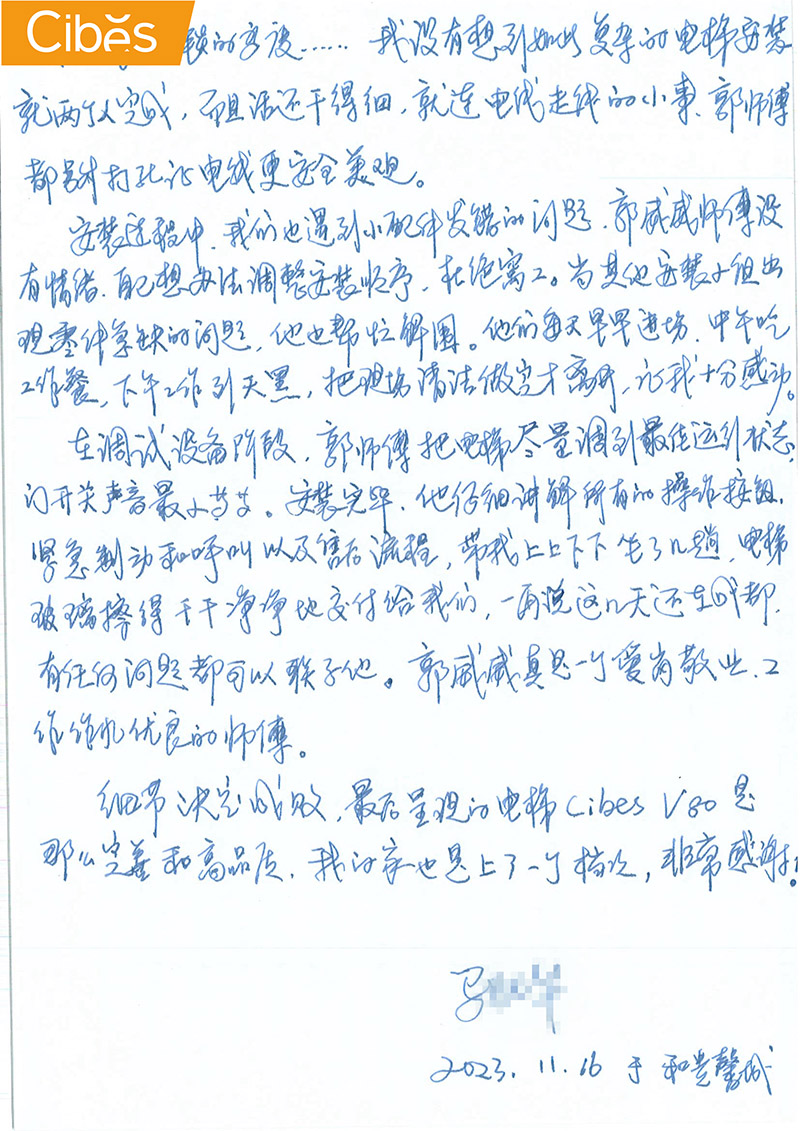 Cibes
锁的高度…… 我没有想到如此复杂的电梯安装
就两个人完成，而且活还干得细，就连电线走线的小事，郭师傅
都另外打孔让电线更安全美观。
安装过程中，我们也遇到小配件发错的问题，郭威威师傅没
有情绪，自己想办法调整安装顺序，杜绝窝工。当其他安装小组出
现零件短缺的问题，他也帮忙解围。他们每天早早进场，中午吃
工作餐，下午工作到天黑，把现场清洁做完才离开，让我十分感动。
在调试设备阶段，郭师傅把电梯尽量调到最佳运行状态，
门开关声音最小等等。安装完毕，他仔细讲解所有的操作按钮，
紧急制动和呼叫以及售后流程，带我上上下下坐了几趟，电梯
玻璃擦得干干净净地交付给我们，一再说这几天还在成都，
有任何问题都可以联系他。郭威威真是一个爱岗敬业、工
作作风优良的师傅。
细节决定成败，最后呈现的电梯Cibes V80是
那么完善和高品质，我的家也是上了一个档次，非常感谢！
2023.11.16 于 和贵馨城